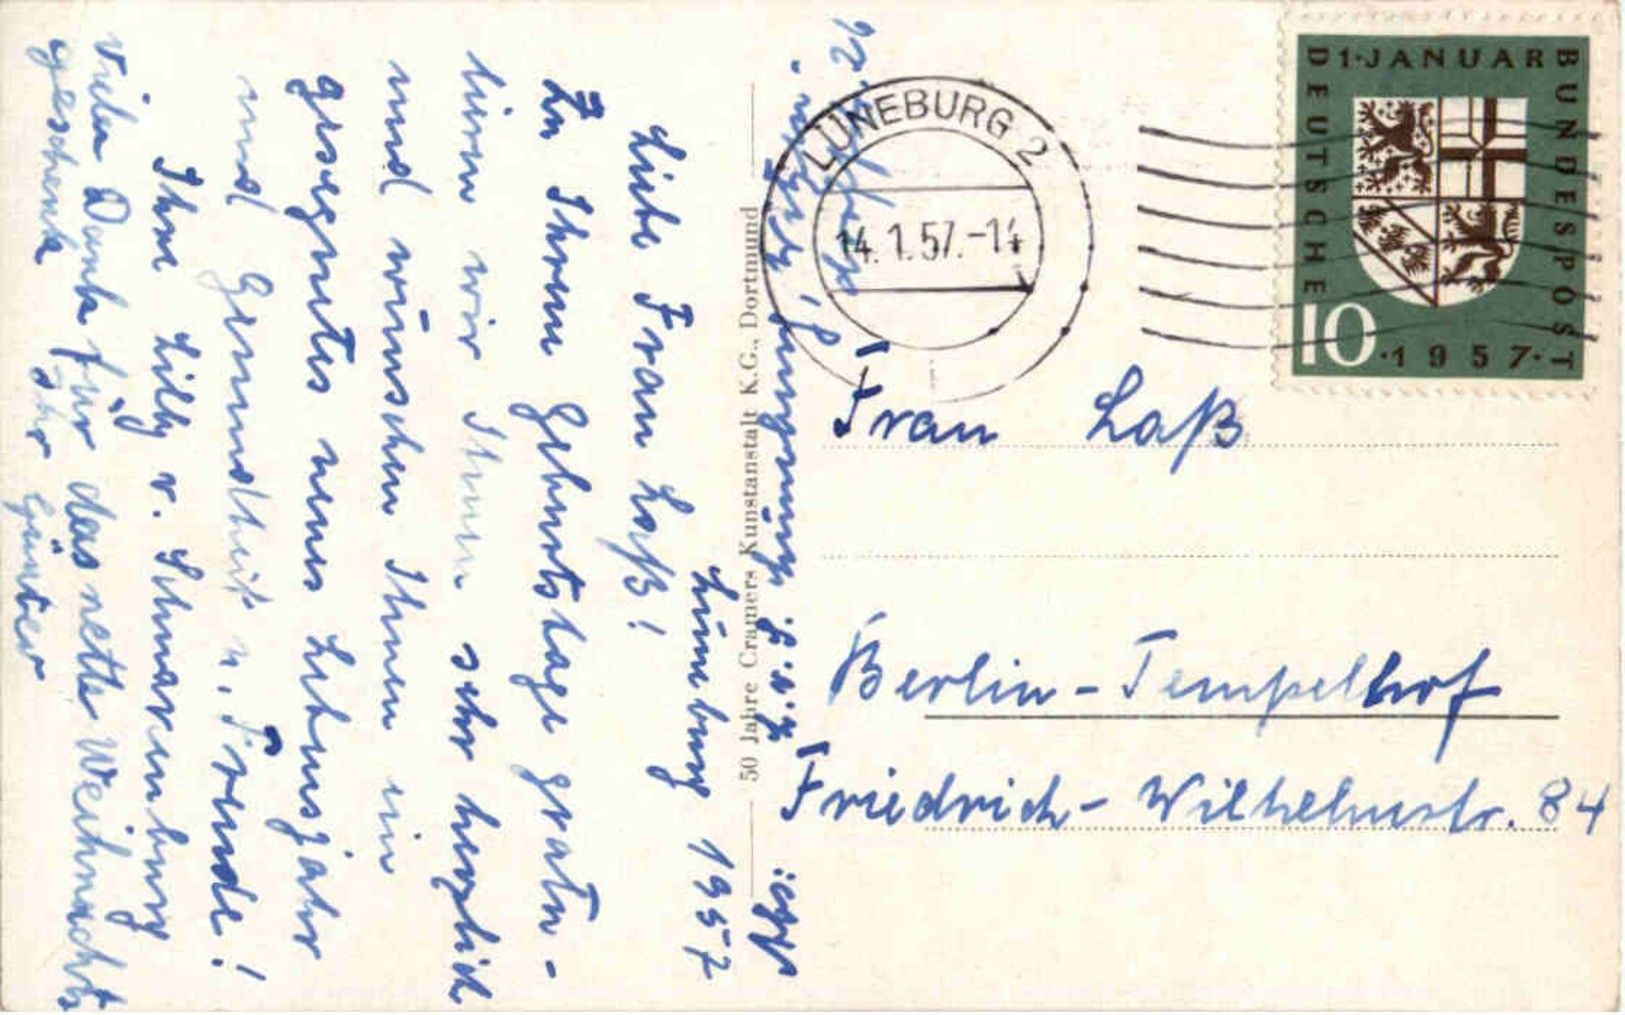 Lüneburg 1957
Liebe Frau Laß!
Zu Ihrem Geburtstage gratu-
lieren wir Ihnen sehr herzlich
und wünschen Ihnen ein
gesegnetes neues Lebensjahr
und Gesundheit u. Freude!
Ihre Lilly v.
Vielen Dank für das nette Weihnachts
geschenk Ihr Günter
Abs:
50 Jahre Cramers Kunstanstalt K.G., Dortmund
LÜNEBURG 2
14.1.57.-14
DEUTSCHE
1·JANUAR
BUNDESPOST
10
·1957·
Frau Laß
Berlin-Tempelhof
Friedrich-Wilhelmstr. 84